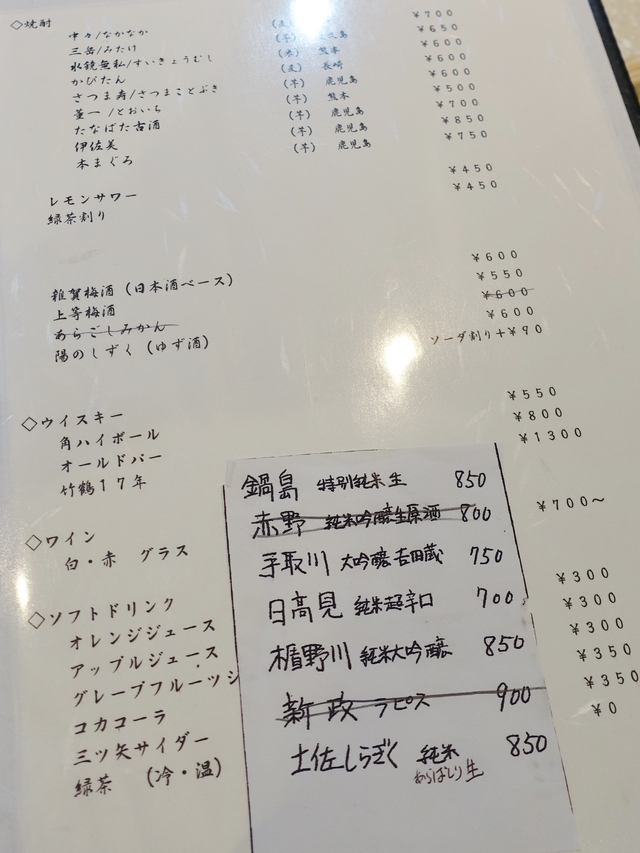 ◇焼酎
中々/なかなか (麦) ¥700
三岳/みたけ (芋) ¥650
水鏡無私/すいきょうむし (米) 熊本 ¥600
かぴたん (麦) 長崎 ¥600
さつま寿/さつまことぶき (芋) 鹿児島 ¥600
董一/とおいち (芋) 熊本 ¥500
たなばた古酒 (芋) 鹿児島 ¥700
伊佐美 (芋) 鹿児島 ¥850
本まぐろ (芋) 鹿児島 ¥750
レモンサワー ¥450
緑茶割り ¥450
雑賀梅酒(日本酒ベース) ¥600
上等梅酒 ¥550
あらごしみかん ¥600
陽のしずく(ゆず酒) ¥600
ソーダ割り+¥90
◇ウイスキー
角ハイボール ¥550
オールドパー ¥800
竹鶴17年 ¥1300
◇ワイン
白・赤 グラス ¥700~
◇ソフトドリンク
オレンジジュース ¥300
アップルジュース ¥300
グレープフルーツジ ¥300
コカコーラ ¥350
三ツ矢サイダー ¥350
緑茶 (冷・温) ¥0
鍋島 特別純米生 850
赤野 純米吟醸生原酒 800
手取川 大吟醸吉田蔵 750
日高見 純米超辛口 700
楯野川 純米大吟醸 850
新政 ラピス 900
土佐しらぎく 純米 850
あらばしり生